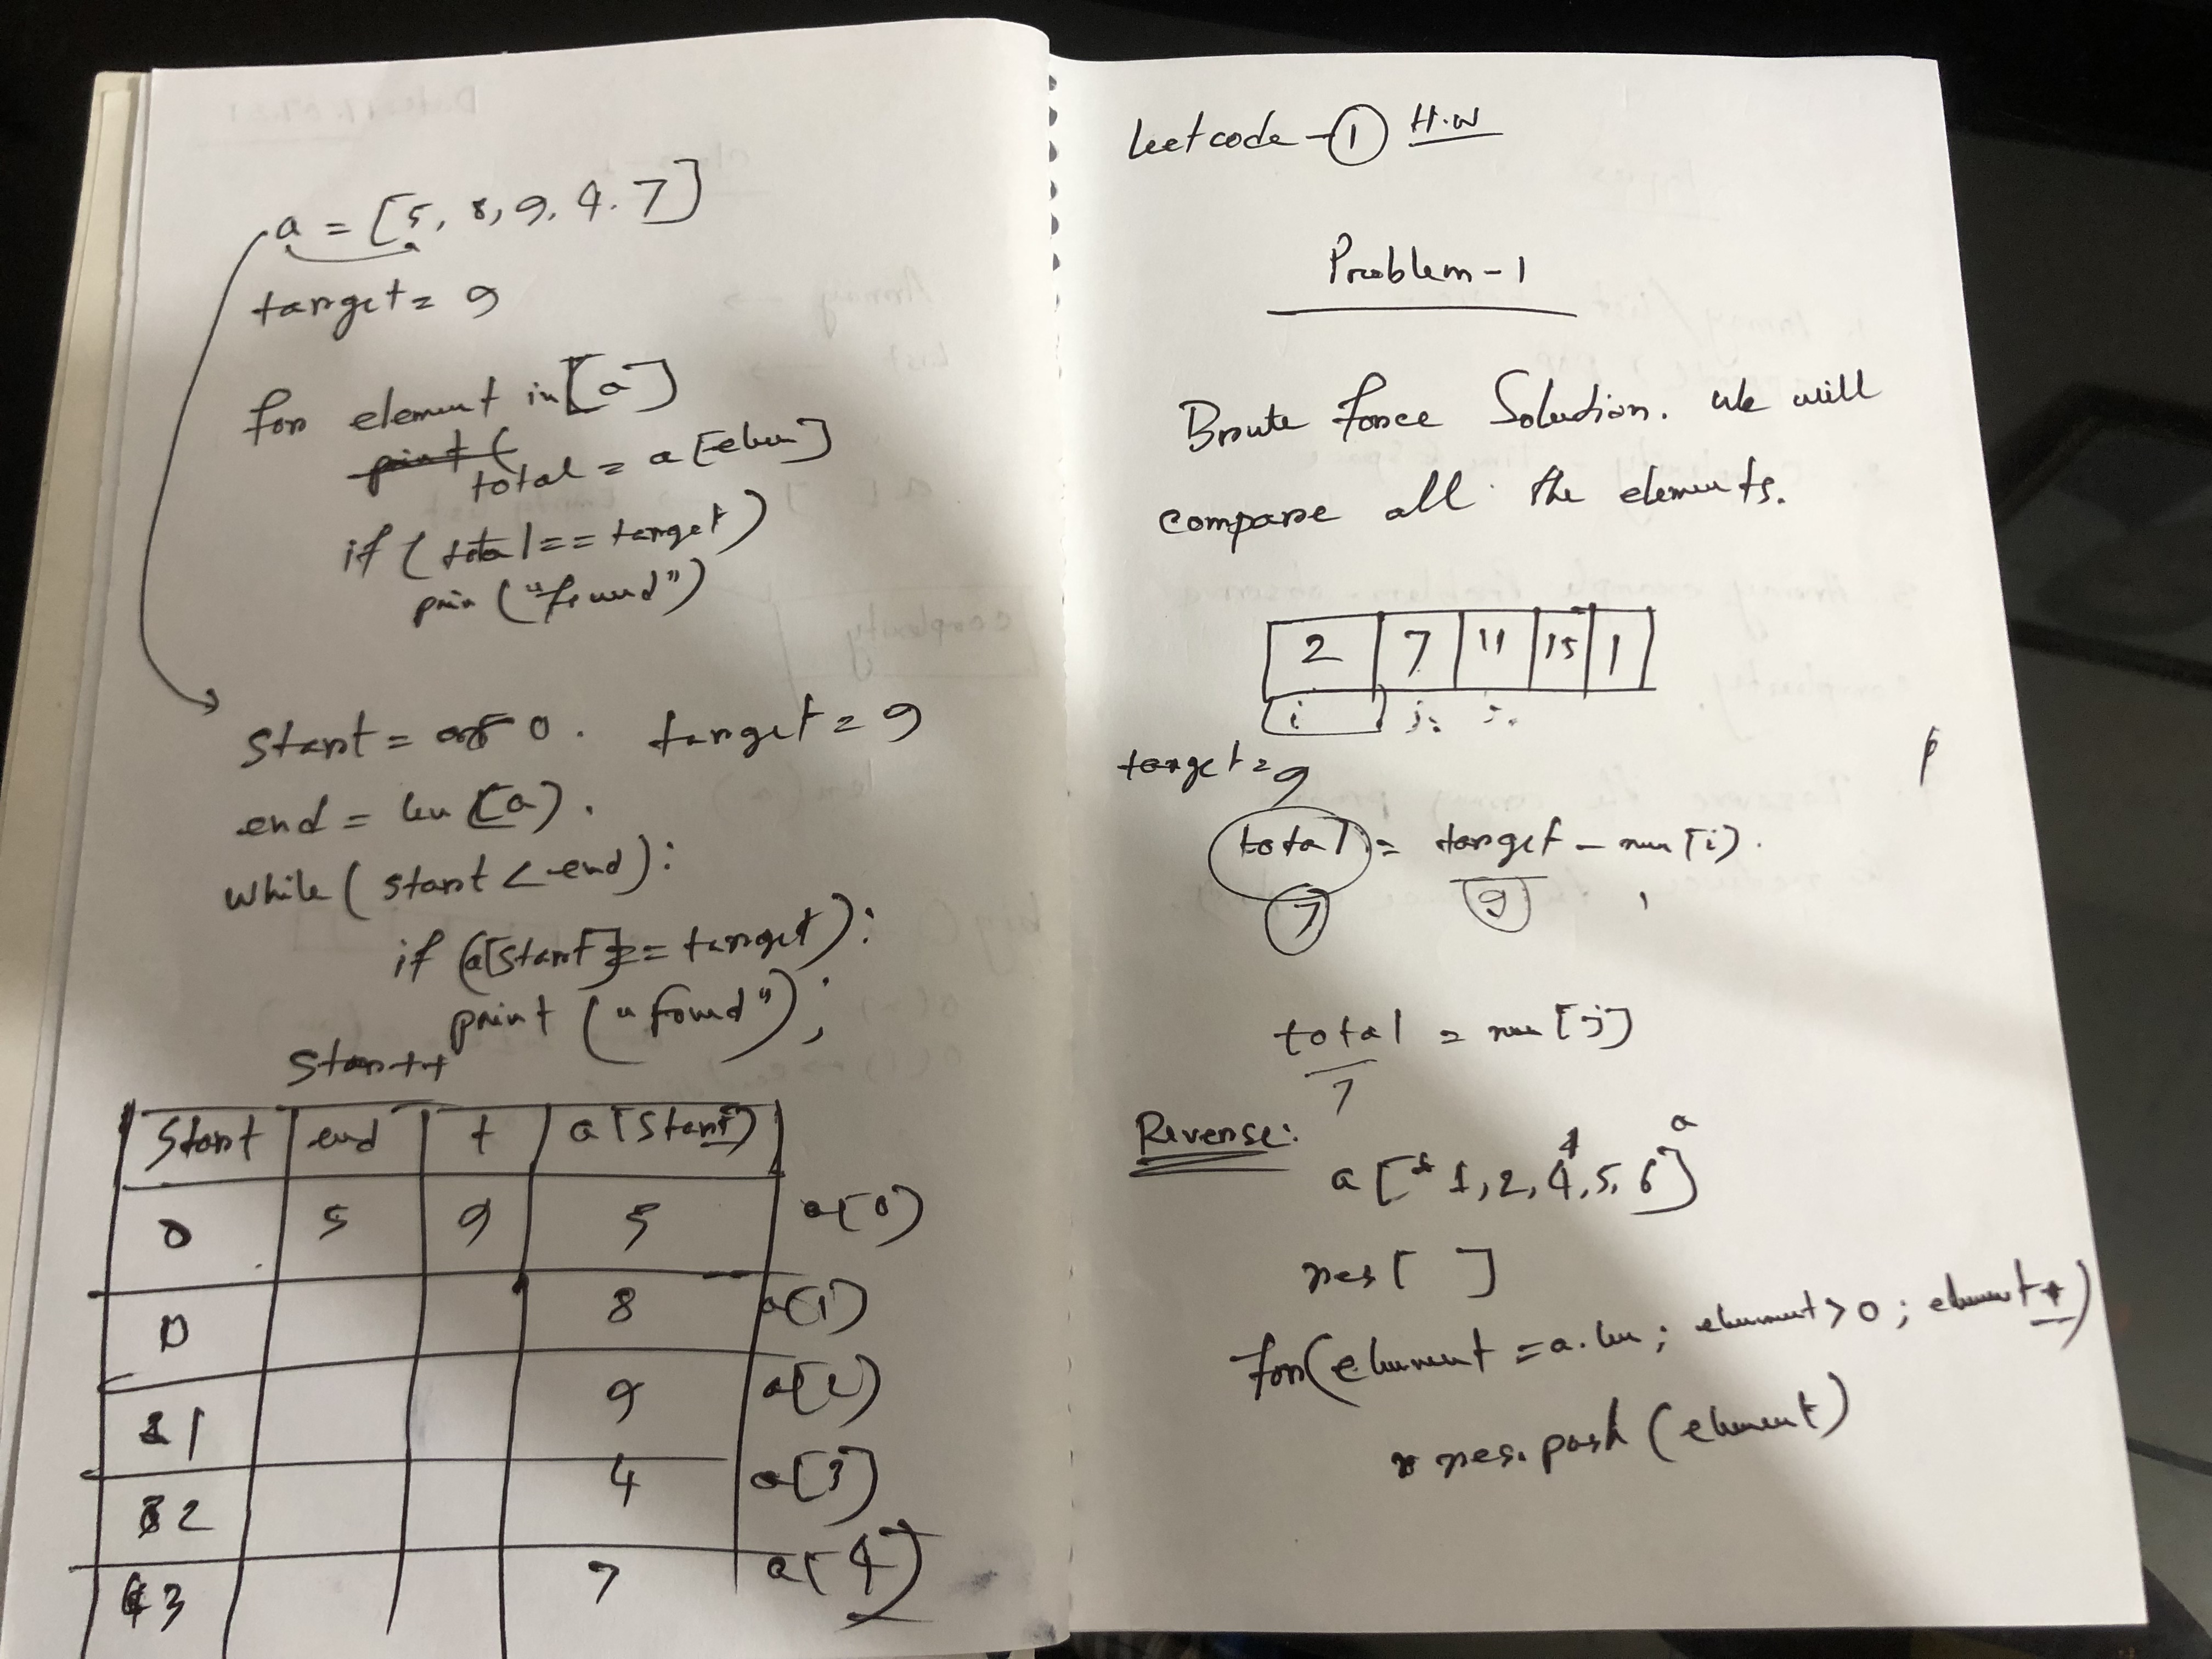 a = [5, 8, 9, 4, 7]
target = 9
for element in [a]
total = a[elem]
if (total == target)
prin ("found")
start = 0. target = 9
end = len [a).
while (start < end):
if (a[start] == target):
print ("found");
start++
start end t a[start]
0 5 9 5 a[0]
8 a[1]
1 9 a[2]
2 4 a[3]
3 7 a[4]
leetcode - 1 H.W
Problem - 1
Brute force Solution. we will
compare all the elements.
2 7 11 15 1
i j
target = 9
total = target - num[i].
7 9
total = num[j]
7
Reverse:
a[1, 2, 4, 5, 6]
res[ ]
for(element = a.len; element > 0; element++)
res.push(element)